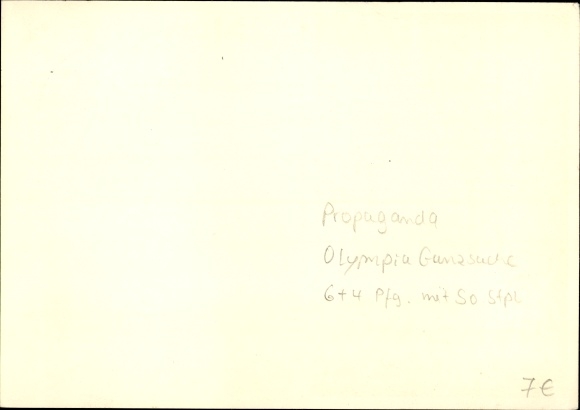 Propaganda
Olympia Ganzsache
6+4 Pfg. mit So Stpl
7€